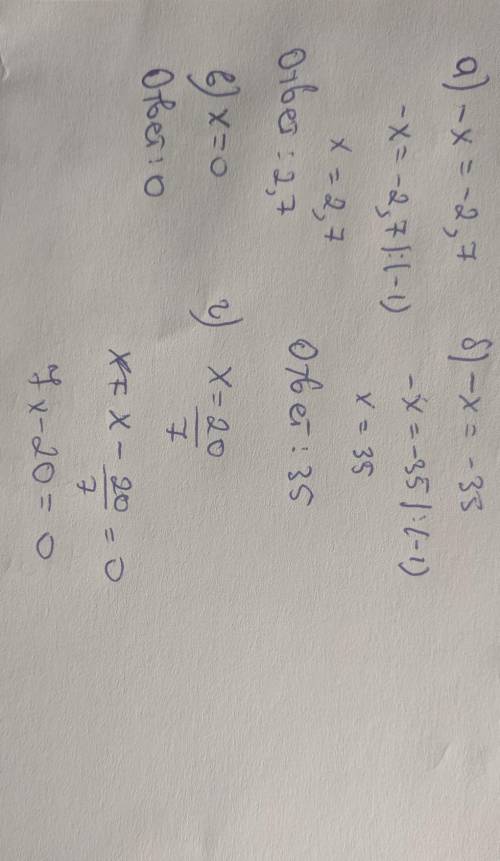 а) -x = -2,7
-x = -2,7 |:(-1)
x = 2,7
Ответ: 2,7
б) -x = -35
-x = -35 |:(-1)
x = 35
Ответ: 35
в) x = 0
Ответ: 0
г) x = 20/7
x - 20/7 = 0
7x - 20 = 0